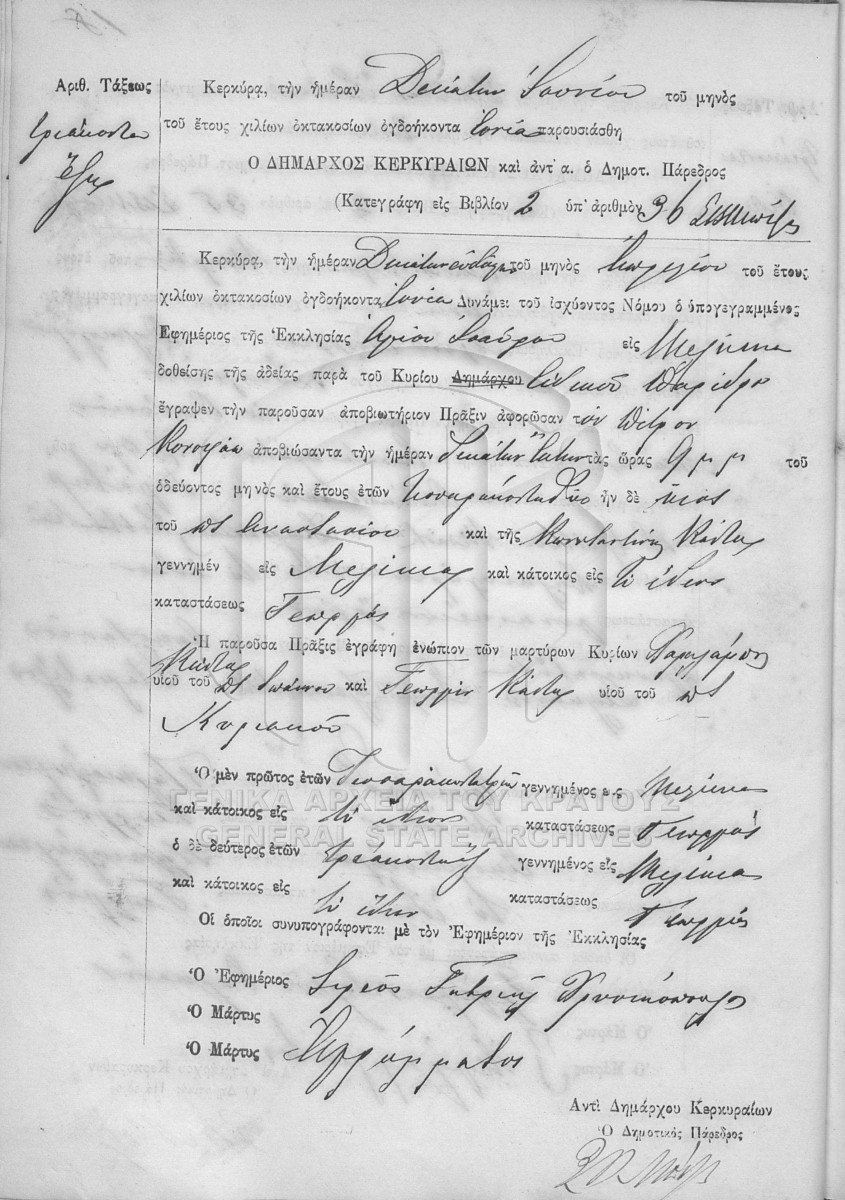 Ἀριθ. Τάξεως
τριάκοντα
ἕξ
Κερκύρᾳ, τὴν ἡμέραν Δεκάτην Ἰουνίου τοῦ μηνὸς
τοῦ ἔτους χιλίων ὀκτακοσίων ὀγδοήκοντα ἐννέα παρουσιάσθη
Ο ΔΗΜΑΡΧΟΣ ΚΕΡΚΥΡΑΙΩΝ καὶ ἀντ' α. ὁ Δημοτ. Πάρεδρος
(Κατεγράφη εἰς Βιβλίον 2 ὑπ' ἀριθμὸν 36
Κερκύρᾳ, τὴν ἡμέραν τοῦ μηνὸς Ἀπριλίου τοῦ ἔτους
χιλίων ὀκτακοσίων ὀγδοήκοντα ἐννέα Δυνάμει τοῦ ἰσχύοντος Νόμου ὁ ὑπογεγραμμένος
Εφημέριος τῆς Ἐκκλησίας Ἁγίου εἰς Μελίκια
δοθείσης τῆς ἀδείας παρὰ τοῦ Κυρίου Δημάρχου εἰδικοῦ Παρέδρου
ἔγραψεν τὴν παροῦσαν ἀποβιωτήριον Πρᾶξιν ἀφορῶσαν τὸν Πέτρον
ἀποβιώσαντα τὴν ἡμέραν Δεκάτην ἕκτην τὰς ὥρας 9 μ μ τοῦ
ὁδεύοντος μηνὸς καὶ ἔτους ἐτῶν ἦν δὲ υἱὸς
τοῦ πο Ἀναστασίου καὶ τῆς Κωνσταντίνας Κάντας
γεννημέν εἰς Μελίκια καὶ κάτοικος εἰς τὸ ἴδιον
καταστάσεως Γεωργὸς
Ἡ παροῦσα Πρᾶξις ἐγράφη ἐνώπιον τῶν μαρτύρων Κυρίων Χαράλαμπος
Κάντας
υἱοῦ τοῦ πο Ἰωάννου καὶ Γεωργίου Κάντας υἱοῦ τοῦ πο
Κυριακοῦ
Ὁ μὲν πρῶτος ἐτῶν γεννημένος εἰς Μελίκια
καὶ κάτοικος εἰς τὸ ἴδιον καταστάσεως Γεωργὸς
ὁ δὲ δεύτερος ἐτῶν τριάκοντα ἓξ γεννημένος εἰς Μελίκια
καὶ κάτοικος εἰς τὸ ἴδιον καταστάσεως Γεωργὸς
Οἱ ὁποῖοι συνυπογράφονται μὲ τὸν Ἐφημέριον τῆς Ἐκκλησίας
Ὁ Ἐφημέριος Ἱερεὺς Γαβριὴλ Χρυσικόπουλος
Ὁ Μάρτυς
Ὁ Μάρτυς Ἀγράμματοι
Αντὶ Δημάρχου Κερκυραίων
Ὁ Δημοτικὸς Πάρεδρος
ΓΕΝΙΚΑ ΑΡΧΕΙΑ ΤΟΥ ΚΡΑΤΟΥΣ
GENERAL STATE ARCHIVES